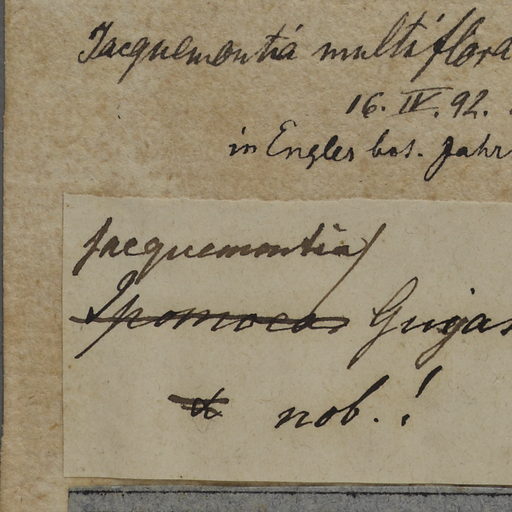 Jacquemontia multiflora
16. IV. 92.
in Engler bot. Jahr
Jacquemontia
Ipomoea
nob.!